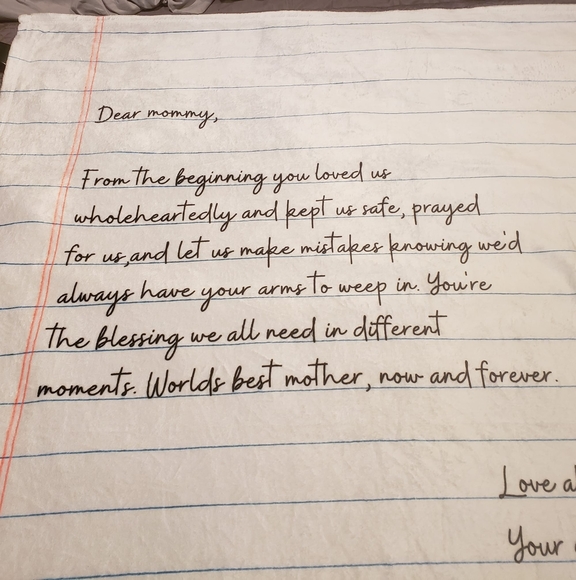 Dear mommy,
From the beginning you loved us
wholeheartedly and kept us safe, prayed
for us,and let us make mistakes knowing we'd
always have your arms to weep in. You're
the blessing we all need in different
moments. Worlds best mother, now and forever.
Love
Your